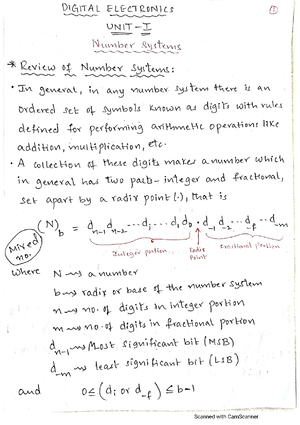 DIGITAL ELECTRONICS
①
UNIT-I
Number Systems
* Review of Number Systems:
• In general, in any number system there is an
ordered set of symbols known as digits with rules
defined for performing arithmetic operations like
addition, multiplication, etc.
• A collection of these digits makes a number which
in general has two parts- integer and fractional,
set apart by a radix point (.), that is
(N)b = dn-1 dn-2 ... di ... d1 d0 . d-1 d-2 ... d-f ... d-m
Integer portion Radix Point fractional portion
Mixed no.
where N → a number
b → radix or base of the number system
n → no. of digits in integer portion
m → no. of digits in fractional portion
dn-1 → Most significant bit (MSB)
d-m → least significant bit (LSB)
and 0 ≤ (di or d-f) ≤ b-1
Scanned with CamScanner